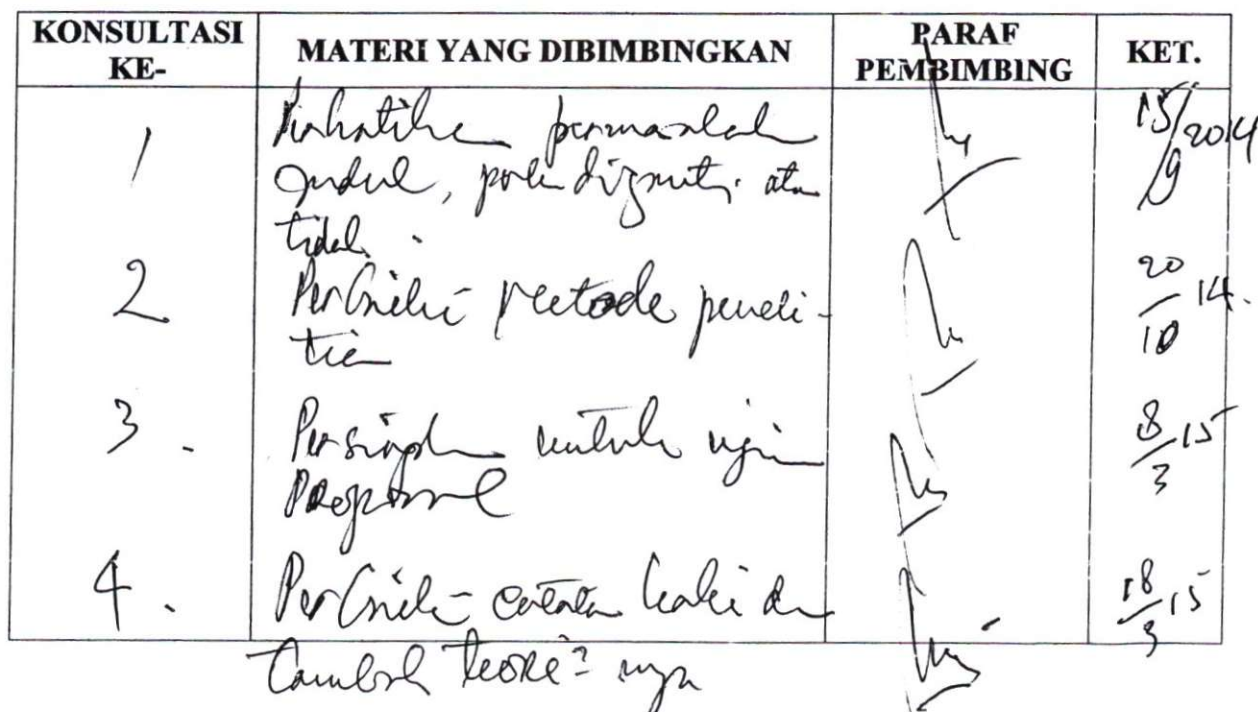 KONSULTASI KE-
MATERI YANG DIBIMBINGKAN
PARAF PEMBIMBING
KET.
1
Perhatikan permasalah
judul, perlu diganti atau
tidak.
15/9 2014
2
Perbaiki metode peneli-
tian
20/10 14.
3.
Persiapkan untuk ujian
Proposal
8/3 15
4.
Perbaiki catatan kaki dan
tambah teori²nya
18/3 15